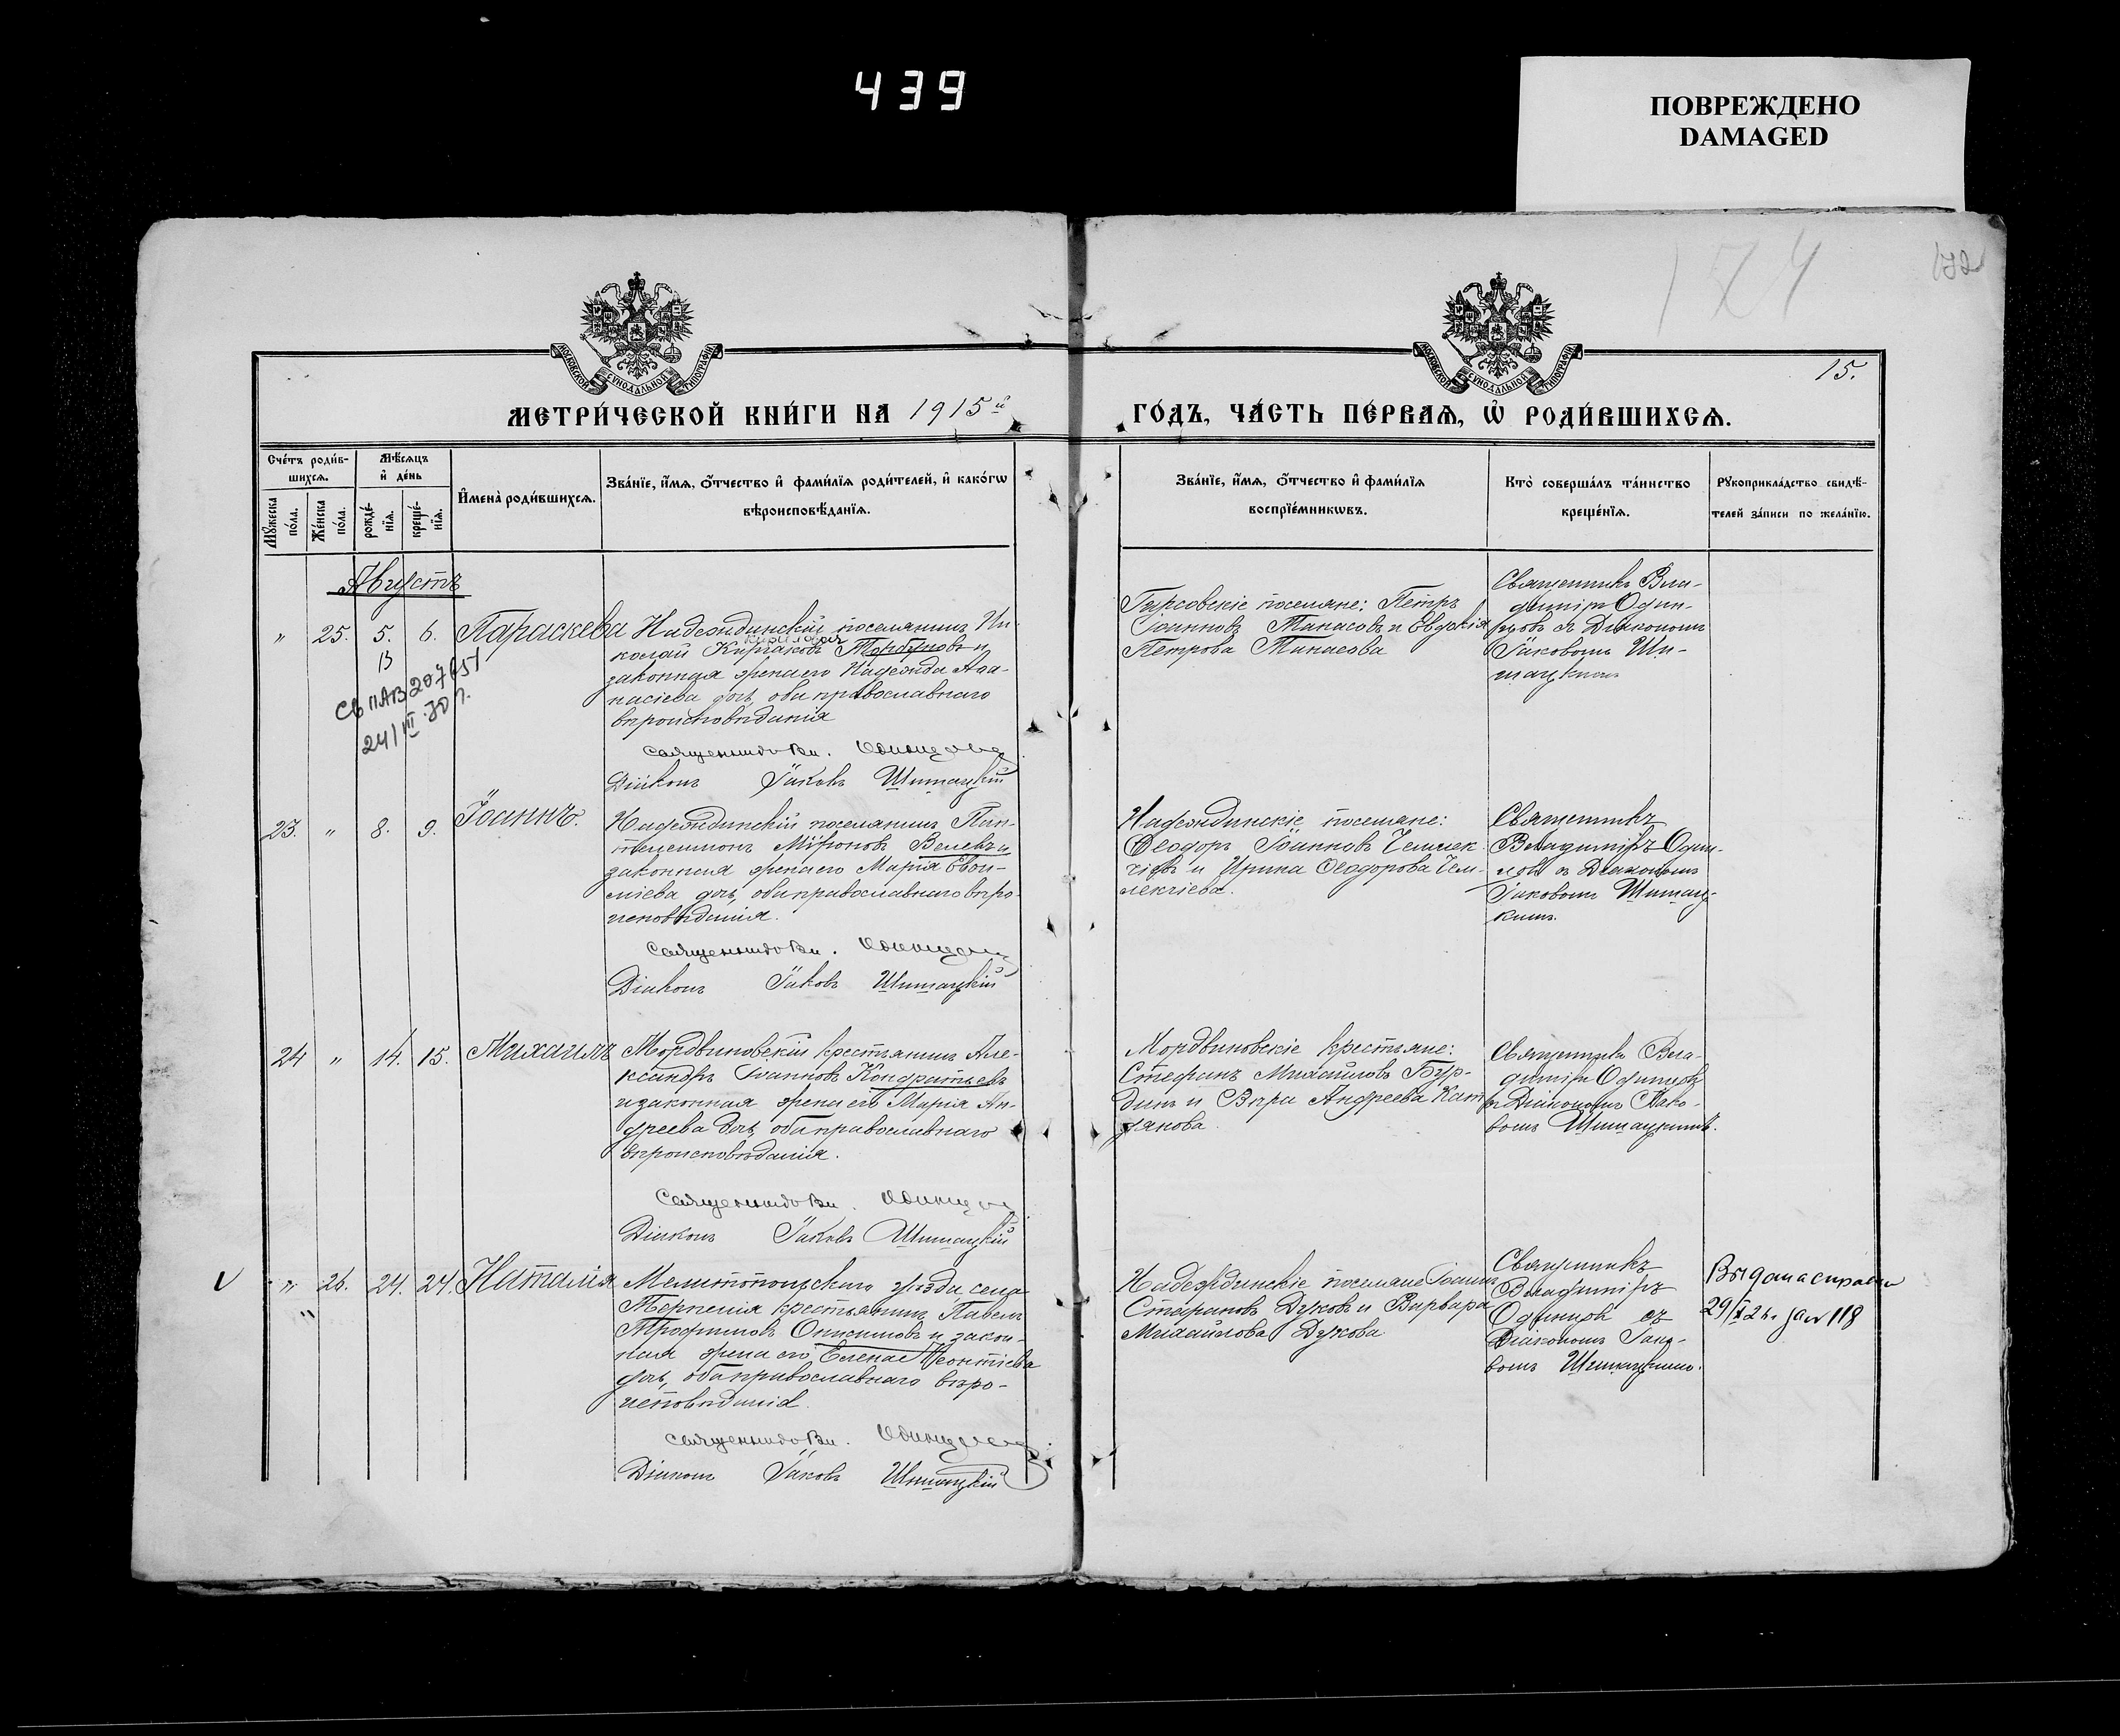 439
ПОВРЕЖДЕНО
DAMAGED
174
172
15.
МОСКОВСКОЙ СѴНОДАЛЬНОЙ ТИПОГРАФІИ
МОСКОВСКОЙ СѴНОДАЛЬНОЙ ТИПОГРАФІИ
МЕТРИ́ЧЕСКОЙ КНИ́ГИ НА 1915й
ГО́ДЪ, ЧА́СТЬ ПЕ́РВАѦ, Ѡ҆ РОДИ́ВШИХСѦ.
Сче́тъ роди́в-
шихсѧ.
Мѣ́сѧцъ
и҆ де́нь
Мꙋ́жеска
по́ла.
Же́нска
по́ла.
рожде́-
нїѧ.
креще́-
нїѧ.
И҆мена̀ роди́вшихсѧ.
Зва́нїе, и҆́мѧ, ѻ҆́тчество и҆ фами́лїѧ роди́телей, и҆ како́гѡ
вѣроисповѣ́данїѧ.
Зва́нїе, и҆́мѧ, ѻ҆́тчество и҆ фами́лїѧ
воспрїе́мникѡвъ.
Кто̀ соверша́лъ та́инство
креще́нїѧ.
Рꙋкоприкла́дство свидѣ́-
телей за́писи по жела́нїю.
Августъ
" 25. 5. 6. Параскева
Надеждинскій поселянинъ Ни-
колай Киріаковъ и
законная жена его Надежда Аѳа-
насіева дочь, оба православнаго
вѣроисповѣданія
Священникъ Вл. Одинцовъ
Діаконъ Іаковъ Шишацкій
Петръ
Іоанновъ Танасовъ и Евдокія
Петрова Танасова
Священникъ Вла-
диміръ Один-
цовъ съ Діакономъ
Іаковомъ Ши-
шацкимъ
В
24/III
23. " 8. 9. Іоаннъ.
Надеждинскій поселянинъ Пан-
телеимонъ Мѵроновъ Велевъ и
законная жена его Марія Евѳи-
міева дочь, оба православнаго вѣро-
исповѣданія.
Священникъ Вл. Одинцовъ
Діаконъ Іаковъ Шишацкій
Надеждинскіе поселяне:
Ѳеодоръ Іоанновъ Челмек-
чіевъ и Ирина Ѳеодорова Чел-
мекчіева.
Священникъ
Владиміръ Один-
цовъ съ Діакономъ
Іаковомъ Шишац-
кимъ.
24 " 14. 15. Михаилъ
Мордвиновскій крестьянинъ Але-
ксандръ Іоанновъ Кондратьевъ
и законная жена его Марія Ан-
дреева дочь, оба православнаго
вѣроисповѣданія.
Священникъ Вл. Одинцовъ
Діаконъ Іаковъ Шишацкій
Мордвиновскіе крестьяне:
Стефанъ Михайловъ Бур-
динъ и Вѣра Андреева
Священникъ Вла-
диміръ Одинцовъ
съ Діакономъ Іако-
вомъ Шишацкимъ.
V " 26. 24. 24. Наталія
Мелитопольскаго уѣзда, села
Терпенія крестьянинъ Павелъ
Трофимовъ Онисимовъ и закон-
ная жена его Елена Леонтіева
дочь, оба православнаго вѣро-
исповѣданія.
Священникъ Вл. Одинцовъ
Діаконъ Іаковъ Шишацкій
Надеждинскіе поселяне Іоаннъ
Стефановъ Дуковъ и Варвара
Михайлова Дукова
Священникъ
Владиміръ
Одинцовъ съ
Діакономъ Іако-
вомъ Шишацкимъ.
Выдана справка
118